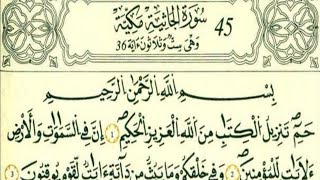 سُورَةُ الجَاثِيَةِ مَكِّيَّة 45
وَهِىَ سِتٌّ وَثَلَاثُونَ ءَايَة 36
بِسْمِ اللَّهِ الرَّحْمَٰنِ الرَّحِيمِ
حمٓ تَنزِيلُ الْكِتَٰبِ مِنَ اللَّهِ الْعَزِيزِ الْحَكِيمِ 1 إِنَّ فِى السَّمَٰوَٰتِ وَالْأَرْضِ
لَءَايَٰتٍ لِّلْمُؤْمِنِينَ 2 وَفِى خَلْقِكُمْ وَمَا يَبُثُّ مِن دَآبَّةٍ ءَايَٰتٌ لِّقَوْمٍ يُوقِنُونَ 3